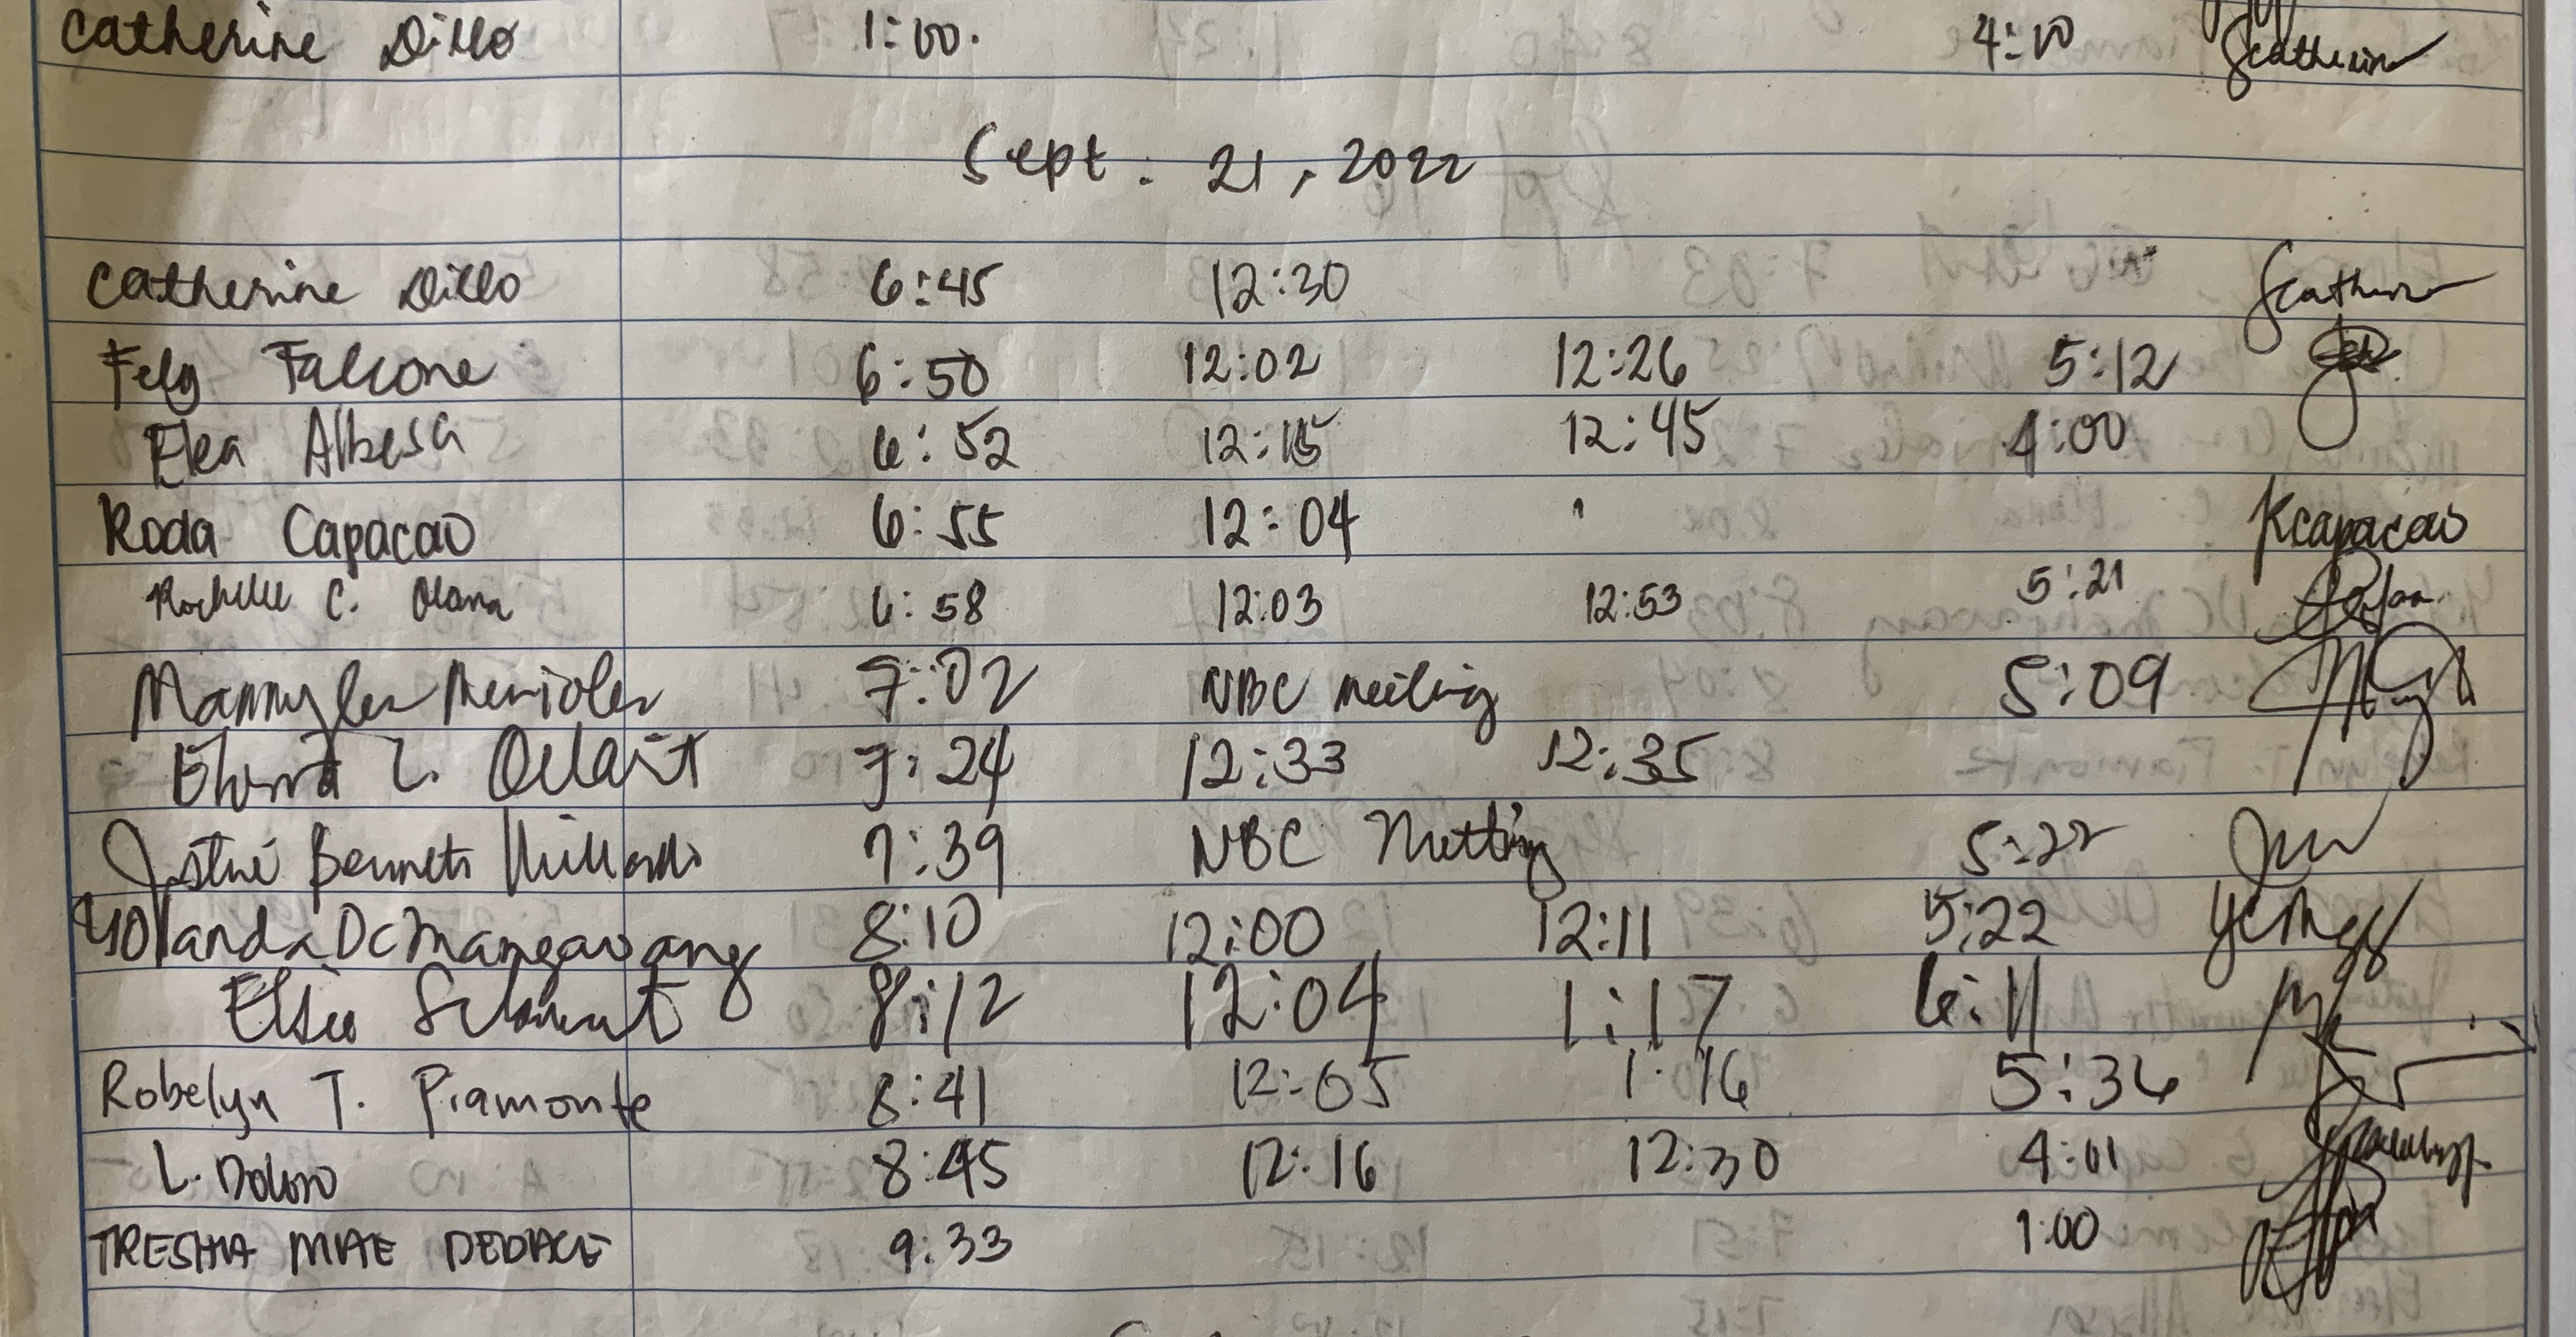 Catherine Dillo 1:00. 4:10 Scatherin
Sept. 21, 2022
Catherine Dillo 6:45 12:30
Fely Falcone 6:50 12:02 12:26 5:12
Elea Albesa 6:52 12:15 12:45 4:00
Roda Capacao 6:55 12:04 Rcapacao
Rochelle C. Olana 6:58 12:03 12:53 5:21
Mannylen Merioles 7:02 NBC meeting 5:09
L. 7:24 12:33 12:35
Bennett 7:39 NBC Meeting 5:22
Yolanda DC Mangawang 8:10 12:00 12:11 5:22
Elsie 8:12 12:04 1:17 6:11
Robelyn T. Piamonte 8:41 12:05 1:16 5:36
L. Doloro 8:45 12:16 12:30 4:01
TRESHA MAE DEDACE 9:33 1:00